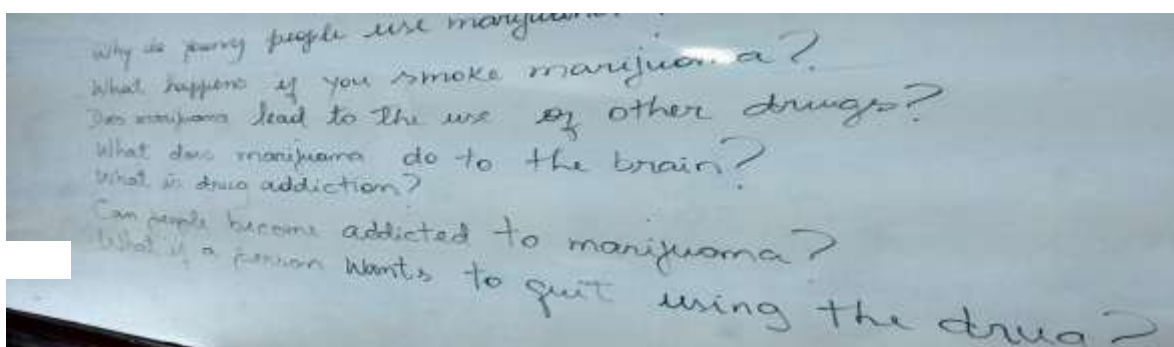 Why do young people use marijuana?
What happens if you smoke marijuana?
Does marijuana lead to the use of other drugs?
What does marijuana do to the brain?
What is drug addiction?
Can people become addicted to marijuana?
What if a person wants to quit using the drug?